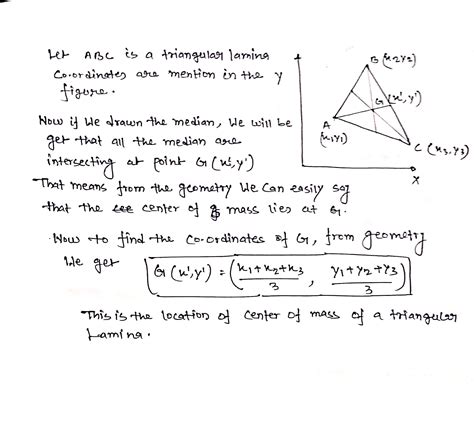 Let ABC is a triangular lamina
Co.ordinates are mention in the
figure.
y
B (x2y2)
G(x',y')
A
(x1y1)
C (x3,y3)
X
Now if We drawn the median, We will be
get that all the median are
intersecting at point G(x',y')
That means from the geometry We Can easily say
that the center of mass lies at G.
Now to find the Co-ordinates of G, from geometry
We get
G(x',y') = (x1+x2+x3/3, y1+y2+y3/3)
This is the location of center of mass of a triangular
Lamina.